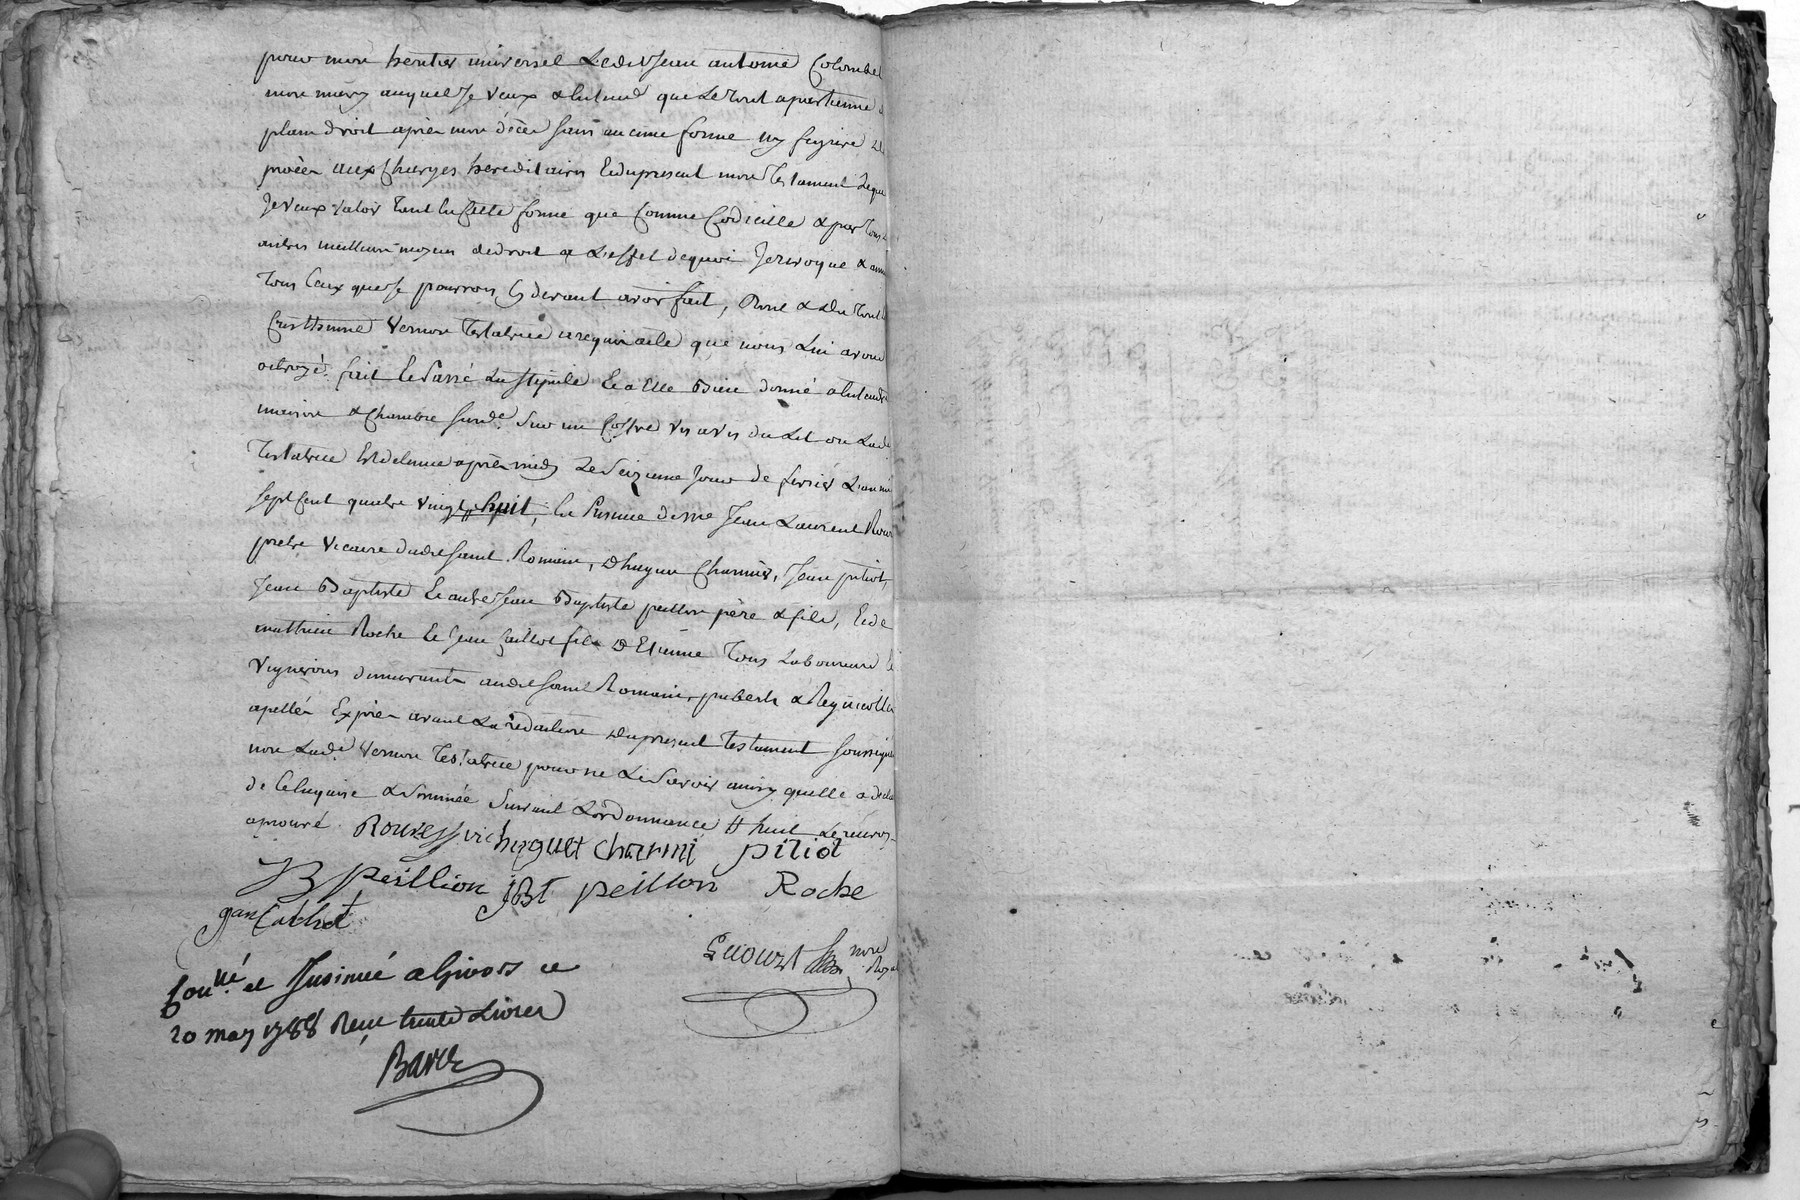 pour mon heritier universel Ledit Jean antoine Colombet
mon mary auquel Je veux & entend que Le tout apartienne
plain droit après mon décès sans aucune forme ny figure de
procès aux Charges hereditaires Et du present mon testament Leque
Je veux valoir tant En Cette forme que Comme Codicille & par tous
autres meilleurs moyens de droit a L'effet de quoi Je revoque & ann
tous Ceux que Je pourrois Cy devant avoir fait, Dont & du tout
Cristhinne Vernon testatrice a requis acte que nous Lui avons
octroyé. fait Et Passé au St Romain
maison & Chambre susde. Sur un Coffre vis a vis du Lit ou Lade
testatrice Est detenue après midy Le Seizieme Jour de fevrier L'an mil
sept Cent quatre vingt huit, En Presence de Mre Jean Laurent Rou
pretre vicaire dudit saint Romain, d'hugue Charmier, Jean pitiot,
Jean Baptiste Et autre Jean Baptiste peillon père & fils, Et de
mathieu Roche Et Jean Caillot fils d'Etienne tous Laboureurs
Vignerons demeurants audit saint Romain,
apellés Exprès avant La redaction du present testament soussignés
non Lade. Vernon testatrice pour ne Le Savoir ainsy quelle a decla
de Ce enquise & Sommée Suivant L'ordonnance // huit
aprouvé. Rouvess vic huguet Charmi pitiot
JB peillion JBt peillon Roche
gan Catlhot
nore
Royal
Conné et Insinué a Givors ce
20 may 1788 Reçu trente Livres